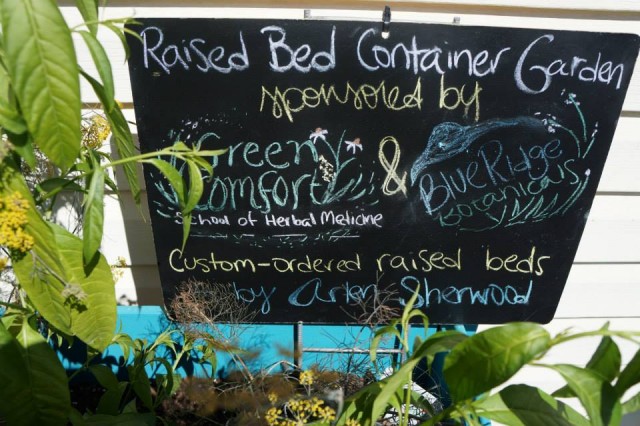 Raised Bed Container Garden
sponsored by
Green Comfort
School of Herbal Medicine
&
Blue Ridge
Botanicals
Custom-ordered raised beds
by Arlen Sherwood